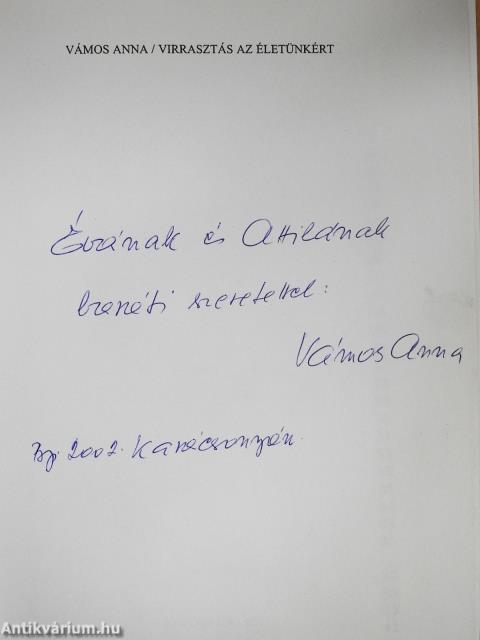 VÁMOS ANNA / VIRRASZTÁS AZ ÉLETÜNKÉRT
Évának és Attilának
baráti szeretettel:
Vámos Anna
Bp. 2002. Karácsonyán.
Antikvárium.hu